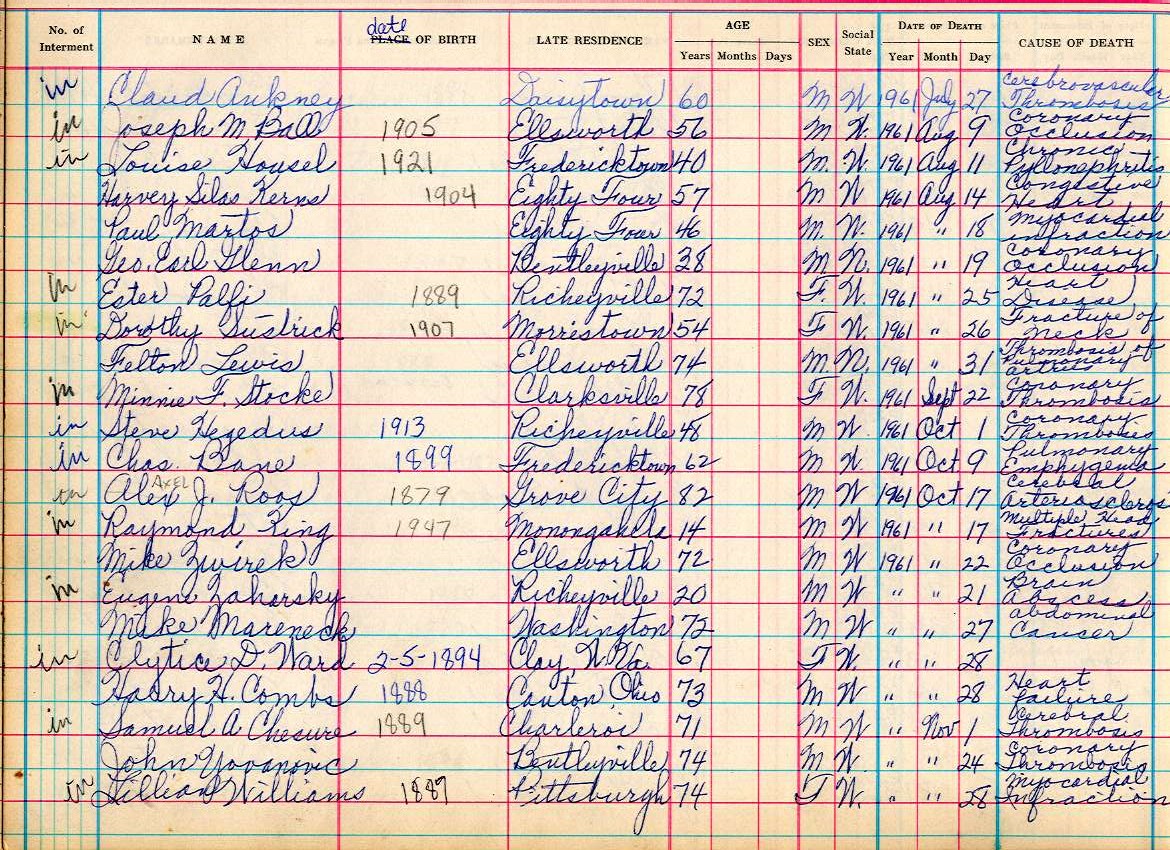 No. of Interment NAME date PLACE OF BIRTH LATE RESIDENCE AGE Years Months Days SEX Social State DATE OF DEATH Year Month Day CAUSE OF DEATH
in Claud Ankney Daisytown 60 M W 1961 July 27 Cerebrovascular Thrombosis
in Joseph M Ball 1905 Ellsworth 56 M W. 1961 Aug 9 Coronary Occlusion
in Louise Housel 1921 Fredericktown 40 M. W. 1961 Aug 11 Chronic Pyllonephritis
Harvey Silas Kerns 1904 Eighty Four 57 M W 1961 Aug 14 Congestive Heart
Paul Martos Eighty Four 46 M W. 1961 " 18 Myocardial Infraction
Geo. Earl Glenn Bentleyville 38 M N. 1961 " 19 Coronary Occlusion
in Ester Palfi 1889 Richeyville 72 F. W. 1961 " 25 Heart Disease
in Dorothy Sustrick 1907 Morrestown 54 F W. 1961 " 26 Fracture of Neck
Felton Lewis Ellsworth 74 M. N. 1961 " 31 Thrombosis of Pulmonary
in Minnie F. Stocke Clarksville 78 F W. 1961 Sept 22 Coronary Thrombosis
in Steve Hegedus 1913 Richeyville 48 M W 1961 Oct 1 Coronary Thrombosis
in Chas. Bane 1899 Fredericktown 62 M W. 1961 Oct 9 Pulmonary Emphygema
in Alex AXEL J. Roos 1879 Grove City 82 M W 1961 Oct 17 Cerebral Arterioscleros
in Raymond King 1947 Monongahela 14 M W 1961 " 17 Multiple Head Fractures
Mike Zwirek Ellsworth 72 M W 1961 " 22 Coronary Occlusion
in Eugene Zaharsky Richeyville 20 M W " " 21 Brain Abscess
Mike Mareneck Washington 72 M W " " 27 abdominal Cancer
in Clytice D. Ward 2-5-1894 Clay, W. Va. 67 F W. " " 28
Harry H. Combs 1888 Canton, Ohio 73 M W " " 28 Heart Failure
in Samuel A Chesure 1889 Charleroi 71 M W " Nov 1 Cerebral Thrombosis
John Yovanovic Bentleyville 74 M W. " " 24 Coronary Thrombosis
in Lillian Williams 1887 Pittsburgh 74 F W. " " 28 Myocardial Infraction